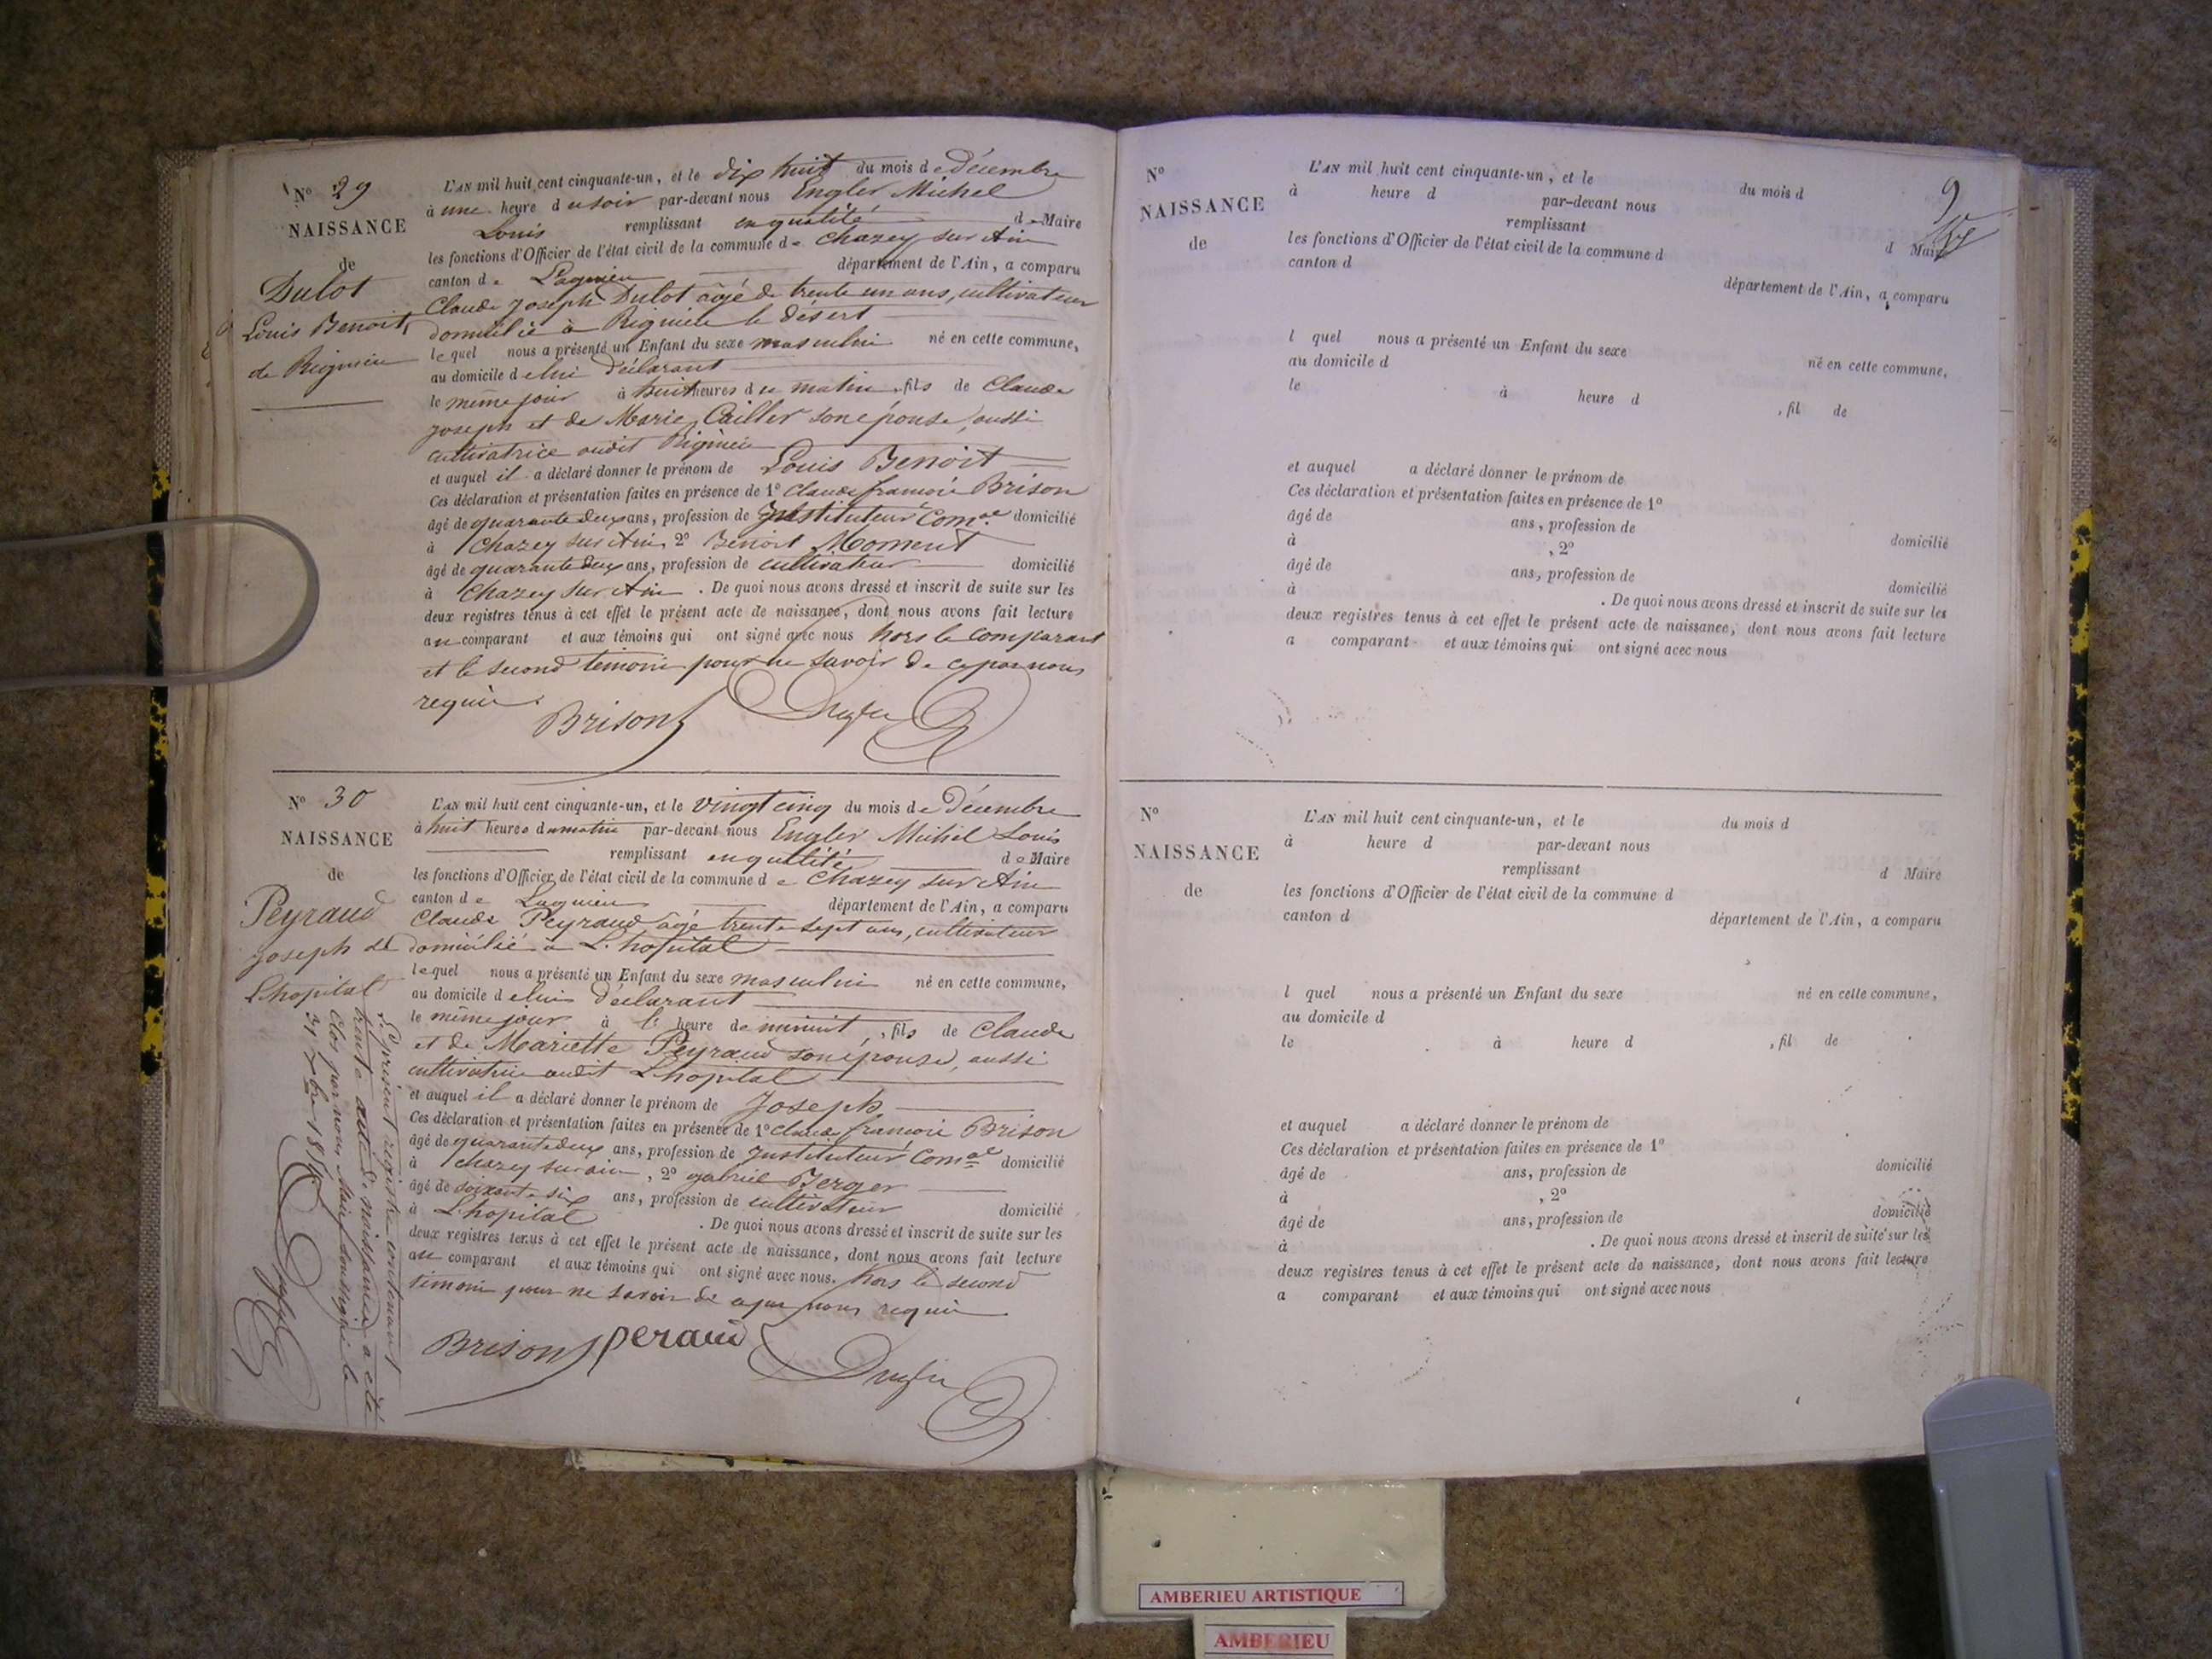 N° 29
NAISSANCE
de
Dulot
Louis Benoit,
de Rignieu
L'AN mil huit cent cinquante-un, et le dix huit du mois de Décembre
à une heure du soir par-devant nous Engler Michel
Louis remplissant en qualité de Maire
les fonctions d'Officier de l'état civil de la commune de Chazey sur Ain
canton de Lagnieu département de l'Ain, a comparu
Claude Joseph Dulot âgé de trente un ans, cultivateur
domicilié à Rignieu le désert
lequel nous a présenté un Enfant du sexe masculin né en cette commune,
au domicile de lui déclarant
le même jour à huit heures du matin, fils de Claude
Joseph et de Marie Cailler son épouse, aussi
cultivatrice audit Rignieu
et auquel il a déclaré donner le prénom de Louis Benoit
Ces déclaration et présentation faites en présence de 1° Claude francois Brison
âgé de quarante deux ans, profession de Instituteur Com.al domicilié
à Chazey sur Ain, 2° Benoit Moment
âgé de quarante deux ans, profession de cultivateur domicilié
à Chazey sur Ain. De quoi nous avons dressé et inscrit de suite sur les
deux registres tenus à cet effet le présent acte de naissance, dont nous avons fait lecture
au comparant et aux témoins qui ont signé avec nous hors le comparant
et le second témoin pour ne savoir de ce par nous
requis.
Brison Engler
N° 30
NAISSANCE
de
Peyraud
Joseph de
L'hopital
L'AN mil huit cent cinquante-un, et le vingt cinq du mois de Décembre
à huit heures du matin par-devant nous Engler Michel Louis
remplissant en qualité de Maire
les fonctions d'Officier de l'état civil de la commune de Chazey sur Ain
canton de Lagnieu département de l'Ain, a comparu
Claude Peyraud, âgé trente sept ans, cultivateur
domicilié à L'hopital
lequel nous a présenté un Enfant du sexe masculin né en cette commune,
au domicile de lui déclarant
le même jour à l' heure de minuit, fils de Claude
et de Mariette Peyraud son épouse, aussi
cultivatrice audit L'hopital
et auquel il a déclaré donner le prénom de Joseph
Ces déclaration et présentation faites en présence de 1° Claude francois Brison
âgé de quarante deux ans, profession de Instituteur Com.al domicilié
à Chazey sur ain, 2° gabriel Berger
âgé de soixante six ans, profession de cultivateur domicilié
à L'hopital. De quoi nous avons dressé et inscrit de suite sur les
deux registres tenus à cet effet le présent acte de naissance, dont nous avons fait lecture
au comparant et aux témoins qui ont signé avec nous. hors le second
témoin pour ne savoir de ce par nous requis
Brison peraud Engler
Le présent registre contenant
trente actes de naissances a été
clos par nous Maire soussigné le
31 Xbre 1851
Engler
9
N°
NAISSANCE
de
L'AN mil huit cent cinquante-un, et le du mois d
à heure d par-devant nous
remplissant d Maire
les fonctions d'Officier de l'état civil de la commune d
canton d département de l'Ain, a comparu
l quel nous a présenté un Enfant du sexe né en cette commune,
au domicile d
le à heure d , fil de
et auquel a déclaré donner le prénom de
Ces déclaration et présentation faites en présence de 1°
âgé de ans, profession de domicilié
à , 2°
âgé de ans, profession de domicilié
à . De quoi nous avons dressé et inscrit de suite sur les
deux registres tenus à cet effet le présent acte de naissance, dont nous avons fait lecture
a comparant et aux témoins qui ont signé avec nous
N°
NAISSANCE
de
L'AN mil huit cent cinquante-un, et le du mois d
à heure d par-devant nous
remplissant d Maire
les fonctions d'Officier de l'état civil de la commune d
canton d département de l'Ain, a comparu
l quel nous a présenté un Enfant du sexe né en cette commune,
au domicile d
le à heure d , fil de
et auquel a déclaré donner le prénom de
Ces déclaration et présentation faites en présence de 1°
âgé de ans, profession de domicilié
à , 2°
âgé de ans, profession de domicilié
à . De quoi nous avons dressé et inscrit de suite sur les
deux registres tenus à cet effet le présent acte de naissance, dont nous avons fait lecture
a comparant et aux témoins qui ont signé avec nous
AMBERIEU ARTISTIQUE
AMBERIEU